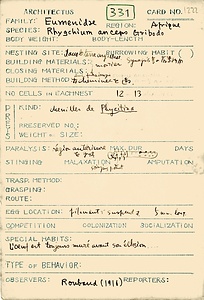 ARCHITECTUS 331 CARD NO. 1271
FAMILY: Eumenidae REGION: Afrique
SPECIES: Rhygchium anceps Gribodo
BODY WEIGHT: BODY-LENGTH
NESTING SITES BURROWING HABIT ( )
BUILDING MATERIALS: mortier
CLOSING MATERIALS:
BUILDING METHOD:
NO. CELLS IN EACH NEST 12 13
KIND: chenilles de Phycitina
PRESERVED NO.:
WEIGHT & SIZE:
PARALYSIS: légère antérieure MAX. DUR. DAYS
STINGING MALAXATION AMPUTATION
TRANSP. METHOD:
GRASPING:
ROUTE:
EGG LOCATION: filament suspenseur 5 mm. long
COMPETITION COLONIZATION SOCIALIZATION
SPECIAL HABITS:
L'oeuf est toujours muni avant son éclosion
TYPE OF BEHAVIOR:
OBSERVERS: Roubaud (1916) REPORTERS: